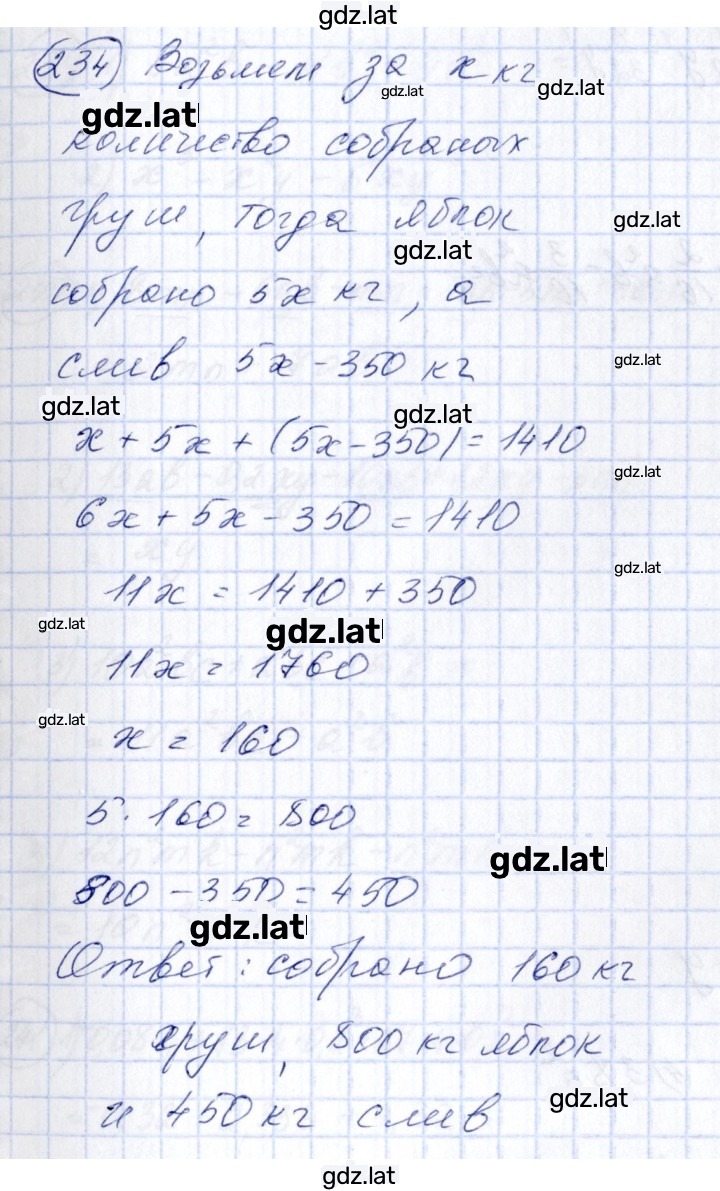 gdz.lat
234 Возьмем за x кг
gdz.lat
gdz.lat
gdz.lat
количество собраных
груш, тогда яблок
gdz.lat
gdz.lat
собрано 5x кг, а
слив 5x - 350 кг
gdz.lat
gdz.lat
gdz.lat
x + 5x + (5x - 350) = 1410
gdz.lat
6x + 5x - 350 = 1410
gdz.lat
11x = 1410 + 350
gdz.lat
gdz.lat
11x = 1760
gdz.lat
x = 160
5 · 160 = 800
gdz.lat
800 - 350 = 450
gdz.lat
Ответ: собрано 160 кг
груш, 800 кг яблок
gdz.lat
и 450 кг слив
gdz.lat